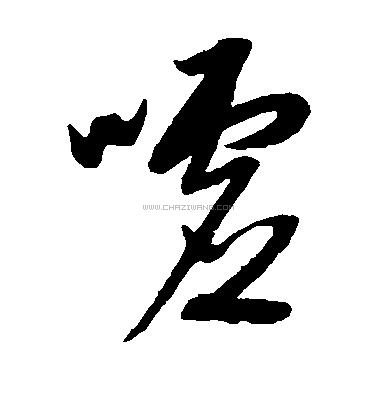 嘘
WWW.CHAZIWANG.COM